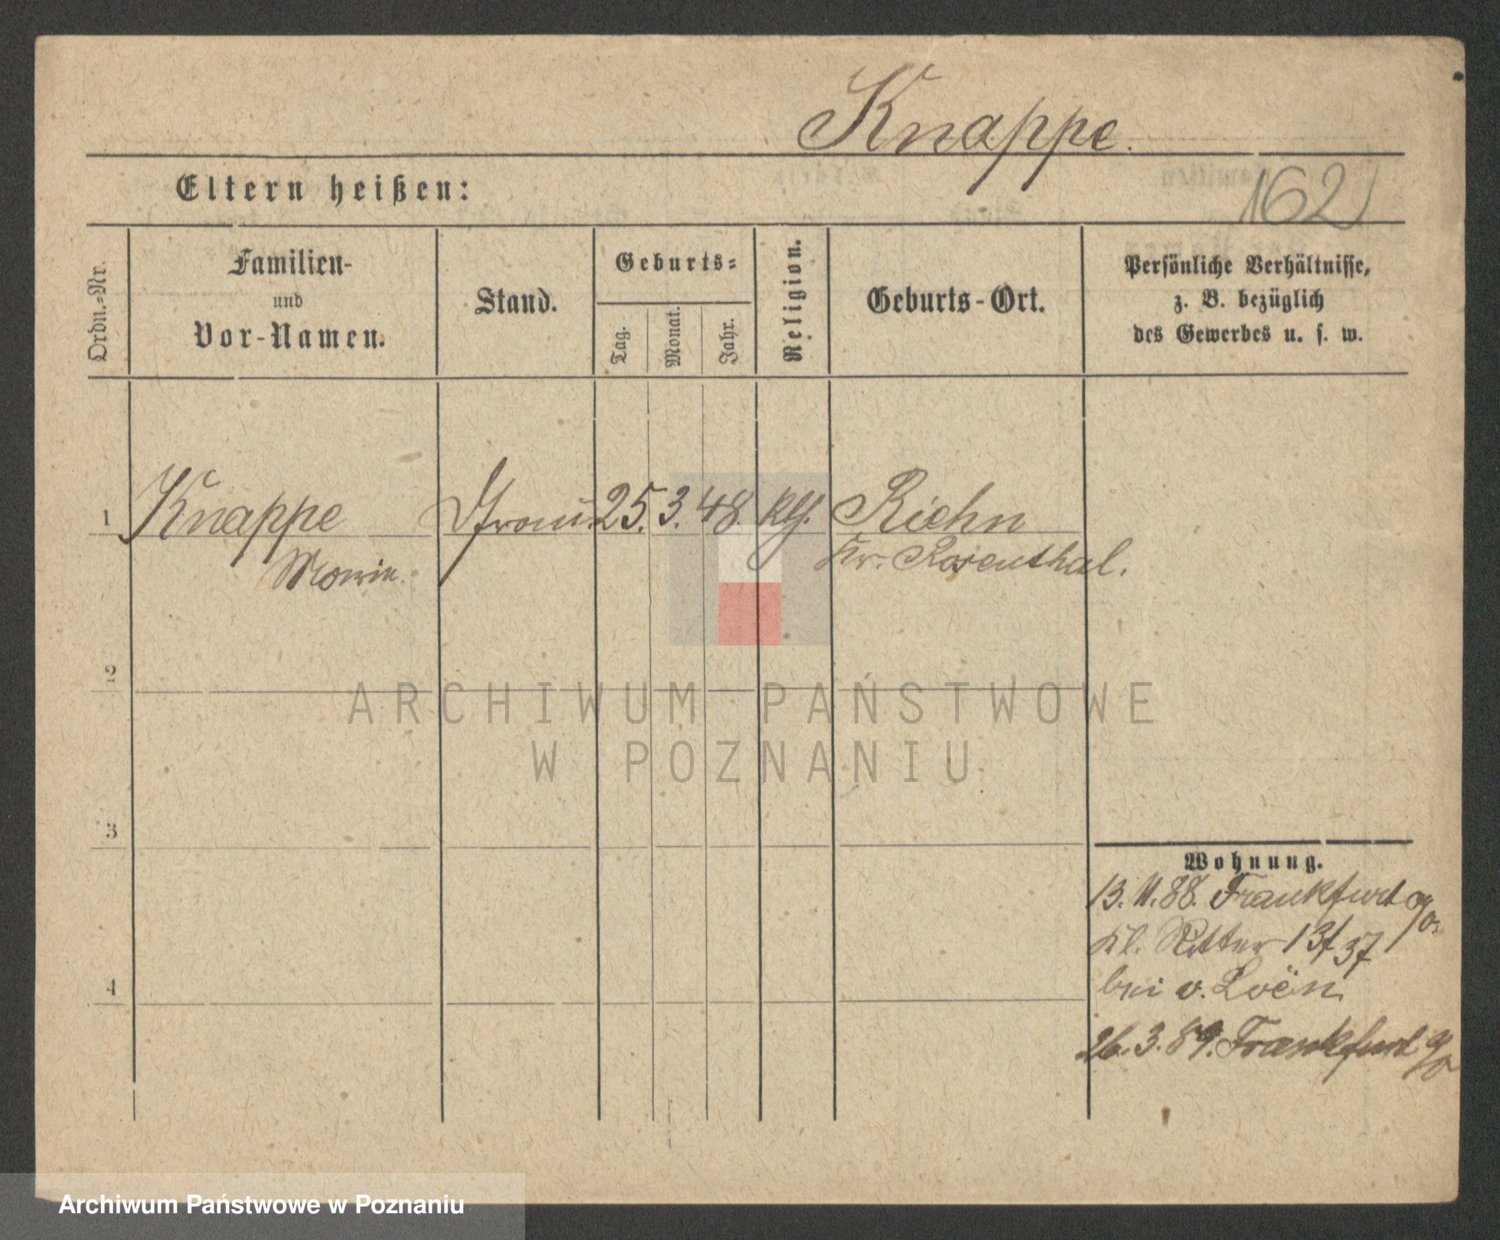 Knappe.
Eltern heißen:
162
Ordn.-Nr.
Familien-
und
Vor-Namen.
Stand.
Geburts-
Tag.
Monat.
Jahr.
Religion.
Geburts-Ort.
Persönliche Verhältnisse,
z. B. bezüglich
des Gewerbes u. s. w.
1 Knappe Frau. 25. 3. 48. Riehn
Kr. Rosenthal.
2
ARCHIWUM PAŃSTWOWE
W POZNANIU
3
4
Wohnung.
13. 11. 88. Frankfurt a/o.
Kl. Ritter 13/37
bei v. Loën.
26. 3. 89. Frankfurt a/o
Archiwum Państwowe w Poznaniu